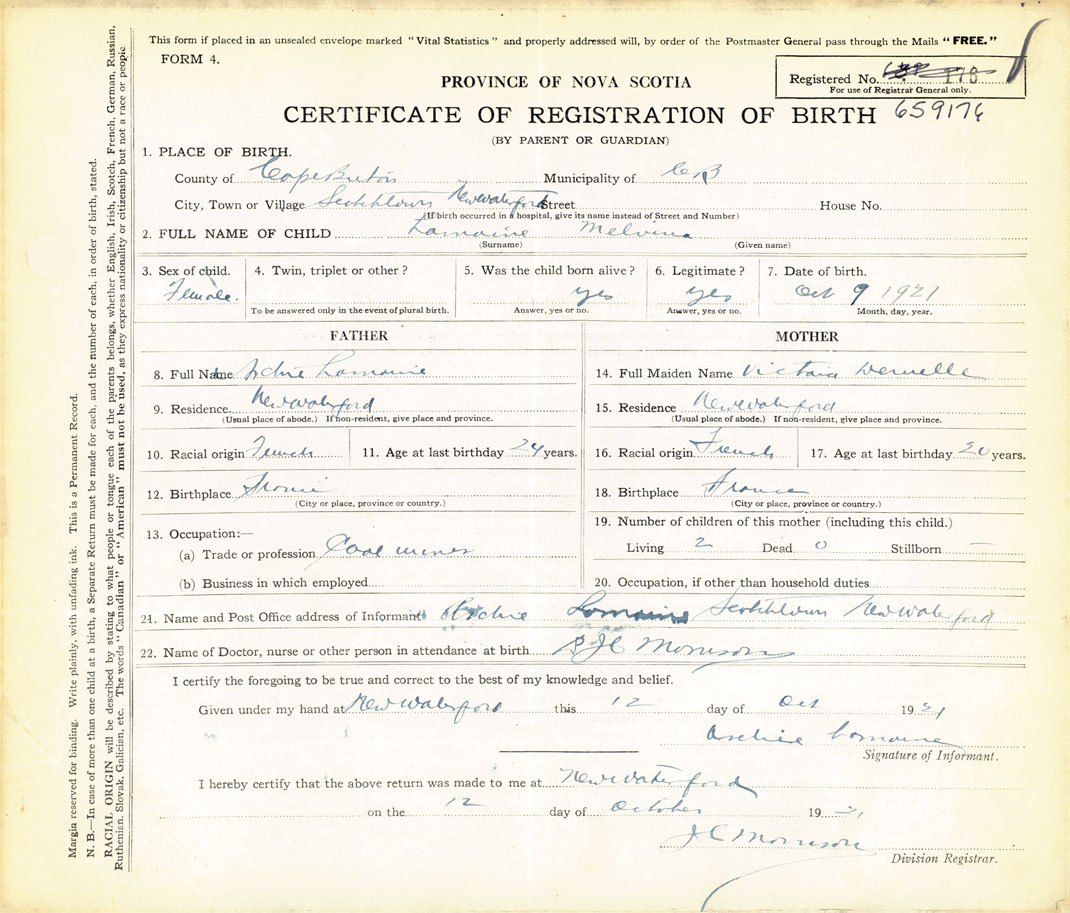 This form if placed in an unsealed envelope marked "Vital Statistics" and properly addressed will, by order of the Postmaster General pass through the Mails "FREE."
FORM 4.
Registered No. 178
For use of Registrar General only.
PROVINCE OF NOVA SCOTIA
CERTIFICATE OF REGISTRATION OF BIRTH 659176
(BY PARENT OR GUARDIAN)
1. PLACE OF BIRTH.
County of Cape Breton Municipality of C B
City, Town or Village Scotchtown New Waterford Street House No.
(If birth occurred in a hospital, give its name instead of Street and Number)
2. FULL NAME OF CHILD Lamaine Melvina
(Surname) (Given name)
3. Sex of child. 4. Twin, triplet or other? 5. Was the child born alive? 6. Legitimate? 7. Date of birth.
Female. yes yes Oct 9 1921
To be answered only in the event of plural birth. Answer, yes or no. Answer, yes or no. Month, day, year.
FATHER
8. Full Name Archie Lamaine
9. Residence New Waterford
(Usual place of abode.) If non-resident, give place and province.
10. Racial origin French 11. Age at last birthday 24 years.
12. Birthplace
(City or place, province or country.)
13. Occupation:—
(a) Trade or profession Coal miner
(b) Business in which employed
MOTHER
14. Full Maiden Name Victoria
15. Residence New Waterford
(Usual place of abode.) If non-resident, give place and province.
16. Racial origin French 17. Age at last birthday 20 years.
18. Birthplace France
(City or place, province or country.)
19. Number of children of this mother (including this child.)
Living 2 Dead 0 Stillborn —
20. Occupation, if other than household duties
21. Name and Post Office address of Informant Archie Lamaine Scotchtown New Waterford
22. Name of Doctor, nurse or other person in attendance at birth J C Morrison
I certify the foregoing to be true and correct to the best of my knowledge and belief.
Given under my hand at New Waterford this 12 day of Oct 1921
Archie Lamaine
Signature of Informant.
I hereby certify that the above return was made to me at New Waterford
on the 12 day of October 1921
J C Morrison
Division Registrar.
Margin reserved for binding. Write plainly, with unfading ink. This is a Permanent Record.
N. B.—In case of more than one child at a birth, a Separate Return must be made for each, and the number of each, in order of birth, stated.
RACIAL ORIGIN will be described by stating to what people or tongue each of the parents belongs, whether English, Irish, Scotch, French, German, Russian,
Ruthenian, Slovak, Galician, etc. The words "Canadian" or "American" must not be used, as they express nationality or citizenship but not a race or people